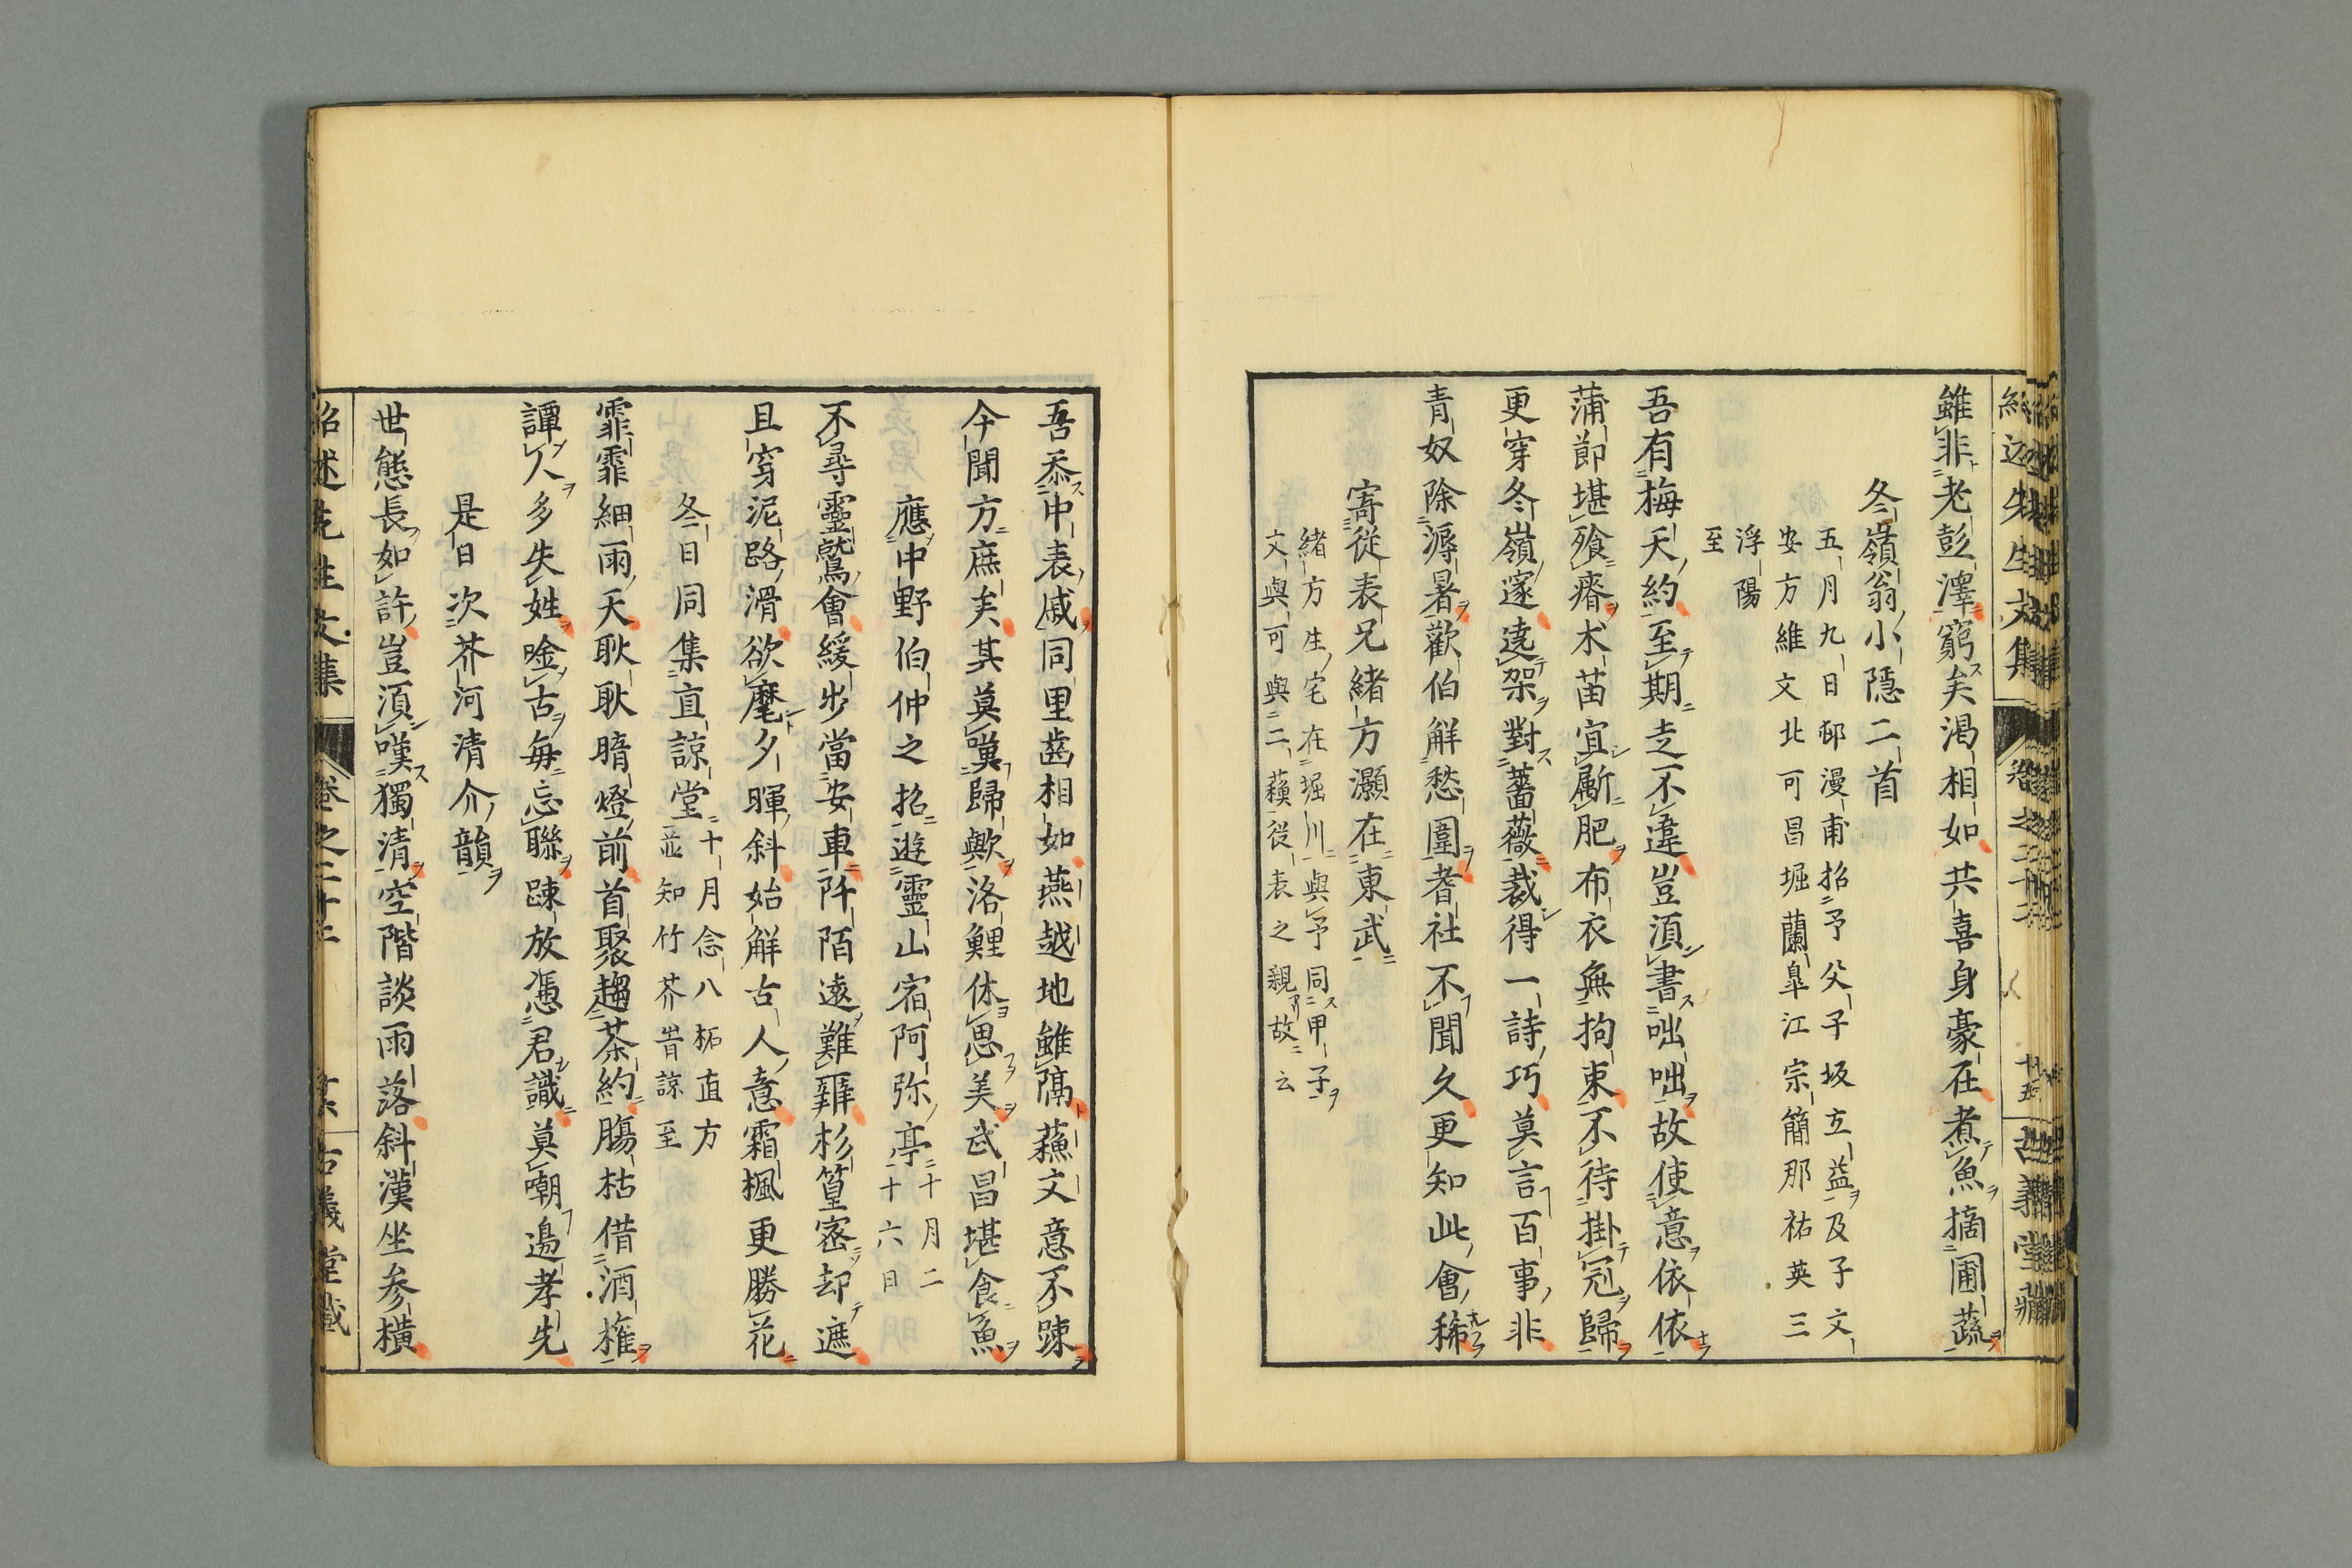 雖非老彭澤窮矣渇相如共喜身豪在煮魚摘圃蔬
冬嶺翁小隱二首
五月九日邨漫甫招予父子坂立益及子文
安方維文北可昌堀蘭皐江宗簡那祐英三
浮陽
至
吾有梅天約至期走不違豈須書咄咄故使意依依
蒲節堪飱瘠朮苗宜斸肥布衣無拘束不待掛冠歸
更穿冬嶺邃遶架對薔薇裁得一詩巧莫言百事非
青奴除溽暑歡伯解愁圍耆社不聞久更知此會稀
寄從表兄緒方灝在東武
緒方生宅在堀川與予同甲子
文與可與二蘓從表之親故云
吾忝中表戚同里齒相如燕越地雖隔蘓文意不踈
今聞方庶矣其莫嘆歸歟洛鯉休思美武昌堪食魚
應中野伯仲之招遊靈山宿阿弥亭
十月二
十六日
不尋靈鷲會緩步當安車阡陌遠難辭杉篁密却遮
且穿泥路滑欲麾夕暉斜始解古人意霜楓更勝花
冬日同集直諒堂
十月念八柘直方
並知竹芥皆諒至
霏霏細雨天耿耿暗燈前首聚趨茶約膓枯借酒權
譚人多失姓唫古每忘聯踈放憑君識莫嘲邉孝先
是日次芥河清介韻
世態長如許豈須嘆獨清空階談雨落斜漢坐参橫
紹述先生文集
卷之二十二
古義堂藏